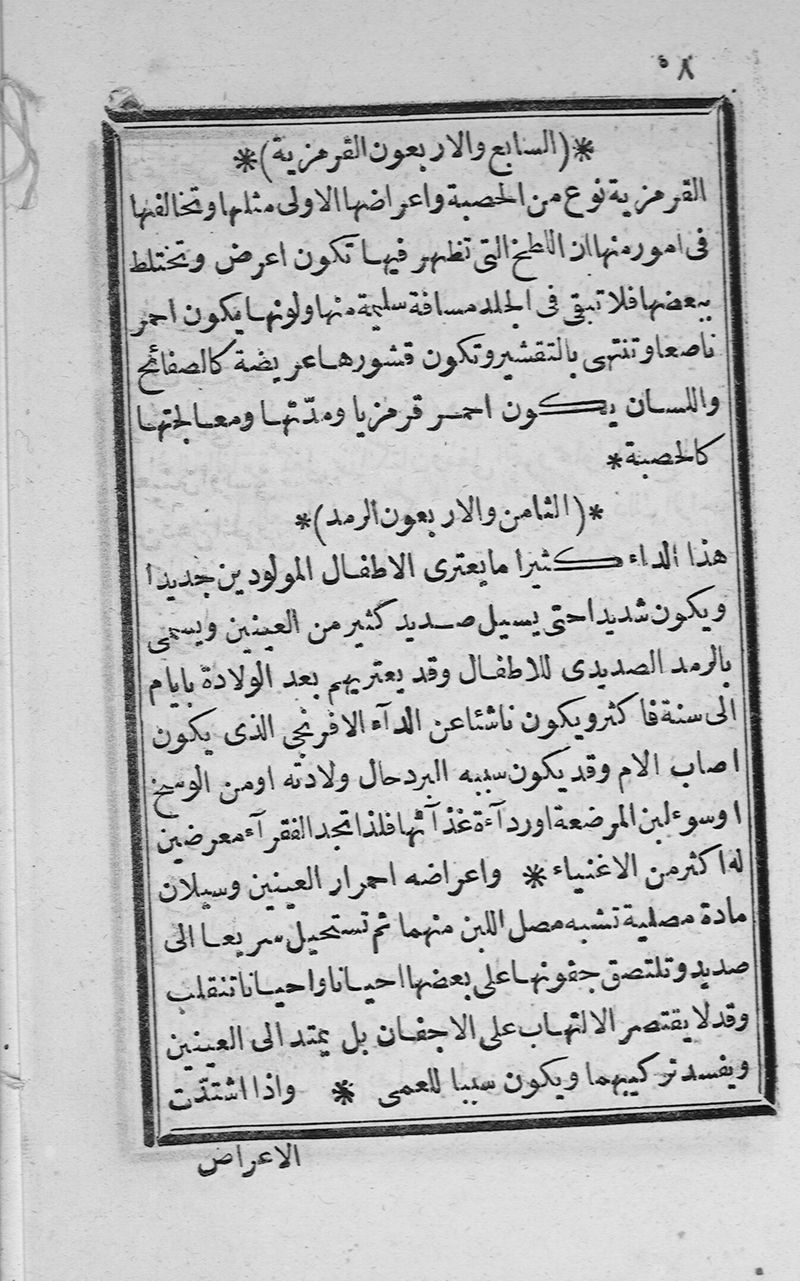 ٥٨
*(السابع والاربعون القرمزية)*
القرمزية نوع من الحصبة واعراضها الاولى مثلها وتخالفها
فى امور منها ان اللطخ التى تظهر فيها تكون اعرض وتختلط
ببعضها فلا تبقى فى الجلد مسافة سليمة منها ولونها يكون احمر
ناصعا وتنتهى بالتقشير وتكون قشورها عريضة كالصفائح
واللسان يكون احمر قرمزيا ومدّتها ومعالجتها
كالحصبة *
*(الثامن والاربعون الرمد)*
هذا الداء كثيرا ما يعترى الاطفال المولودين جديدا
ويكون شديدا حتى يسيل صديد كثير من العينين ويسمى
بالرمد الصديدى للاطفال وقد يعتريهم بعد الولادة بايام
الى سنة فاكثر ويكون ناشئا عن الدآء الافرنجى الذى يكون
اصاب الام وقد يكون سببه البرد حال ولادته او من الوسخ
او سوء لبن المرضعة اوردآءة غذآئها فلذا تجد الفقرآء معرضين
له اكثر من الاغنياء * واعراضه احمرار العينين وسيلان
مادة مصلية تشبه مصل اللبن منهما ثم تستحيل سريعا الى
صديد وتلتصق جفونها على بعضها احيانا واحيانا تنقلب
وقد لا يقتصر الالتهاب على الاجفان بل يمتد الى العينين
ويفسد تركيبهما ويكون سببا للعمى * واذا اشتدّت
الاعراض